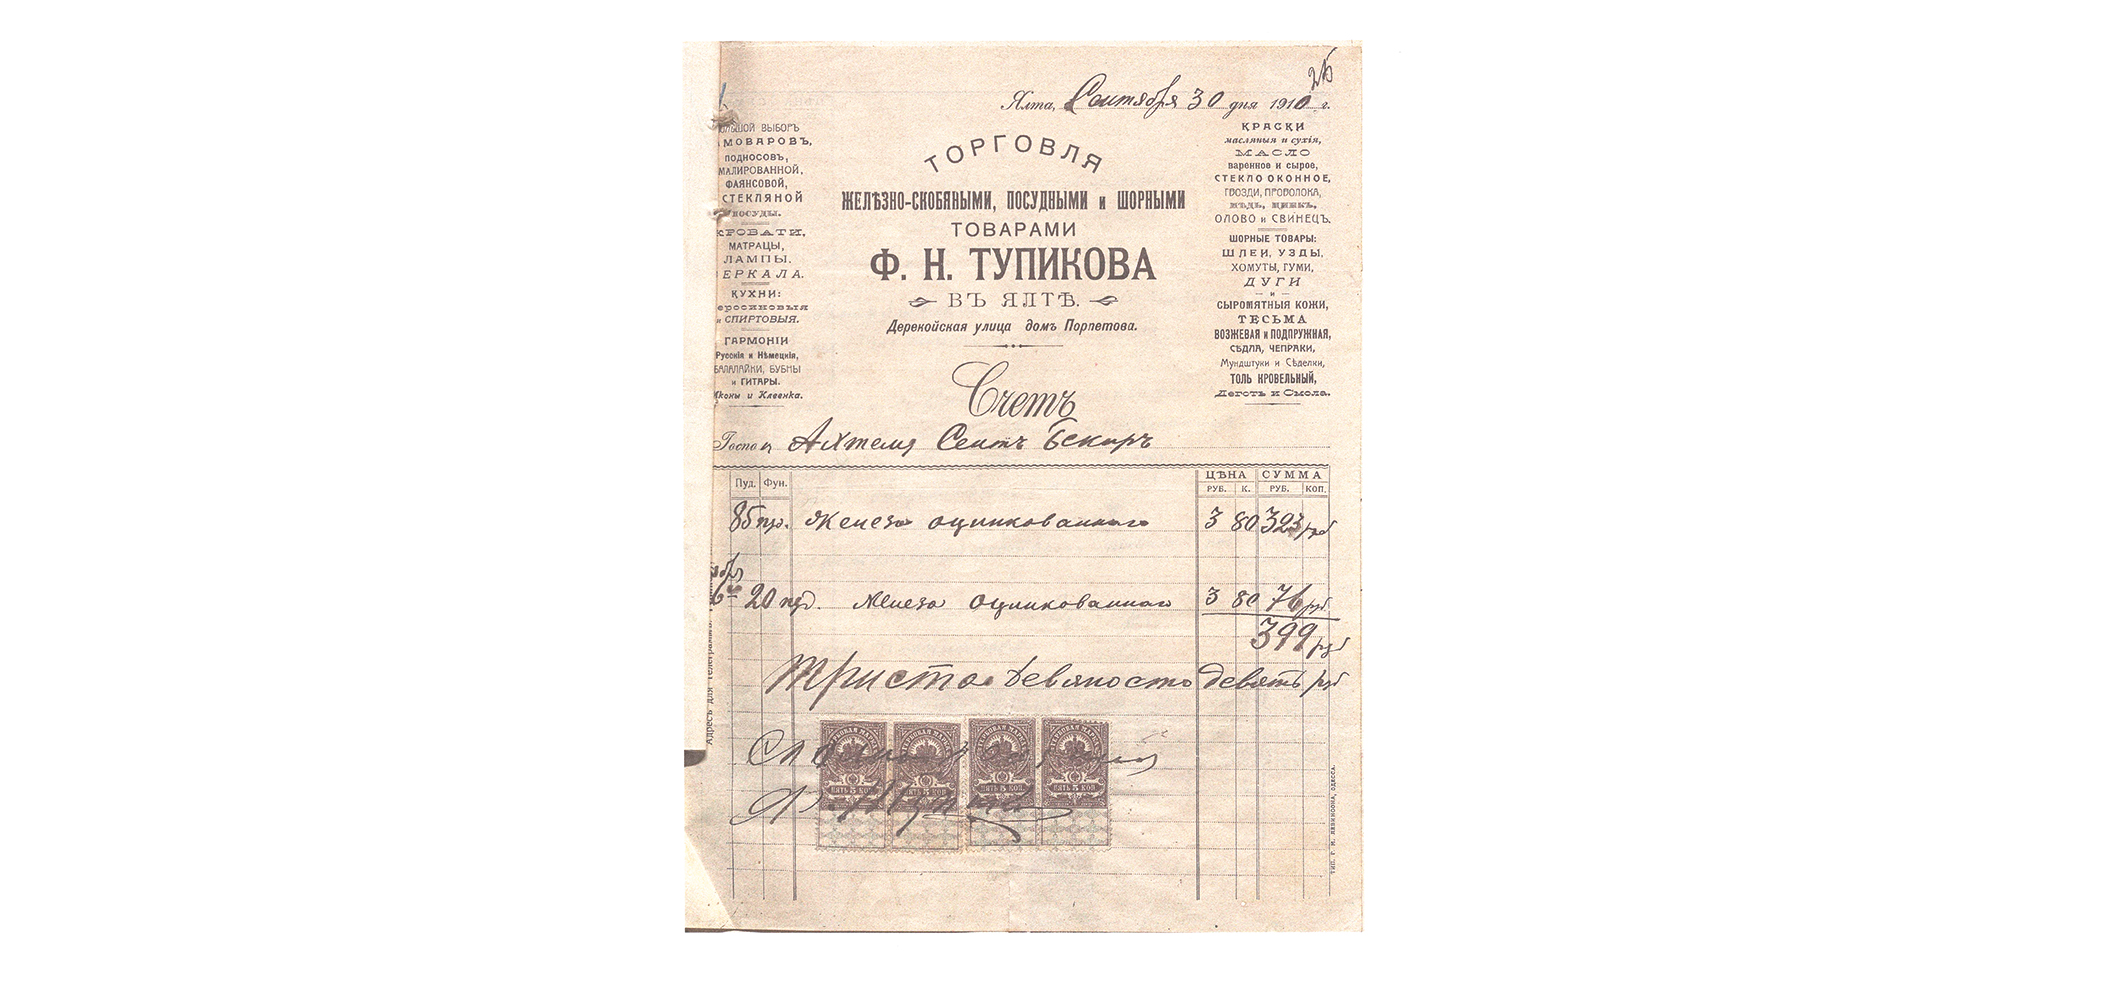 25
Ялта, Сентября 30 дня 1910 г.
ОЛЬШОЙ ВЫБОРЪ
МОВАРОВЪ,
ПОДНОСОВЪ,
МАЛИРОВАННОЙ,
ФАЯНСОВОЙ,
СТЕКЛЯНОЙ
ПОСУДЫ.
КРОВАТИ,
МАТРАЦЫ,
ЛАМПЫ,
ЕРКАЛА.
КУХНИ:
еросиновыя
и СПИРТОВЫЯ.
ГАРМОНІИ
Русскія и Нѣмецкія,
БАЛАЛАЙКИ, БУБНЫ
и ГИТАРЫ.
Иконы и Клеенка.
ТОРГОВЛЯ
ЖЕЛѢЗНО-СКОБЯНЫМИ, ПОСУДНЫМИ и ШОРНЫМИ
ТОВАРАМИ
Ф. Н. ТУПИКОВА
ВЪ ЯЛТѢ.
Дерекойская улица домъ Порпетова.
КРАСКИ
масляныя и сухія,
МАСЛО
варенное и сырое,
СТЕКЛО ОКОННОЕ,
ГВОЗДИ, ПРОВОЛОКА,
МѢДЬ, ЦИНКЪ,
ОЛОВО и СВИНЕЦЪ.
ШОРНЫЕ ТОВАРЫ:
ШЛЕИ, УЗДЫ,
ХОМУТЫ, ГУМИ,
ДУГИ
— и —
СЫРОМЯТНЫЯ КОЖИ,
ТЕСЬМА
ВОЗЖЕВАЯ и ПОДПРУЖНАЯ,
СѢДЛА, ЧЕПРАКИ,
Мундштуки и Сѣделки,
ТОЛЬ КРОВЕЛЬНЫЙ,
Деготь и Смола.
Счетъ
Госпо н Ахтемя Сеитъ Бекиръ
Пуд. Фун. ЦѢНА СУММА
РУБ. К. РУБ. КОП.
85 пуд. Железа оцинкованнаго 3 80 323 руб
20 пуд. железа оцинкованнаго 3 80 76 руб
399 руб
Триста девяносто девять руб
ГЕРБОВАЯ МАРКА ГЕРБОВАЯ МАРКА ГЕРБОВАЯ МАРКА ГЕРБОВАЯ МАРКА
ПЯТЬ 5 КОП ПЯТЬ 5 КОП ПЯТЬ 5 КОП ПЯТЬ 5 КОП
Адресъ для телеграммъ:
ТИП. Г. М. ЛЕВИНСОНА, ОДЕССА.